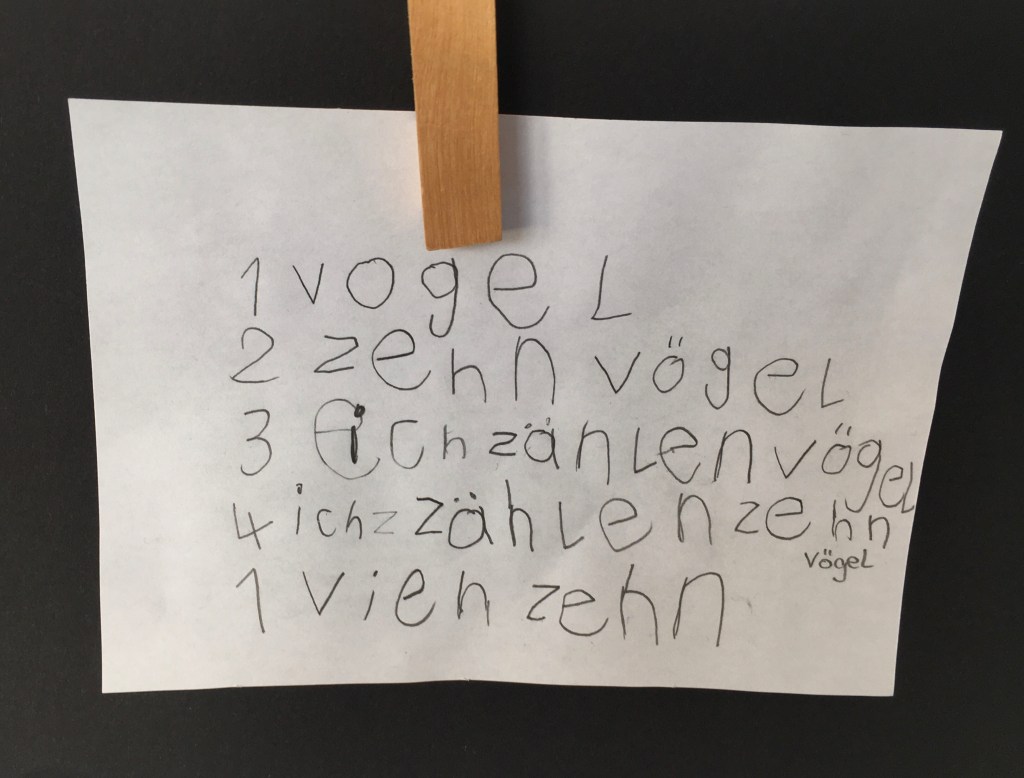 1 vogel
2 zehn vögel
3 ich zählen vögel
4 ich z zählen zehn
vögel
1 vieh zehn